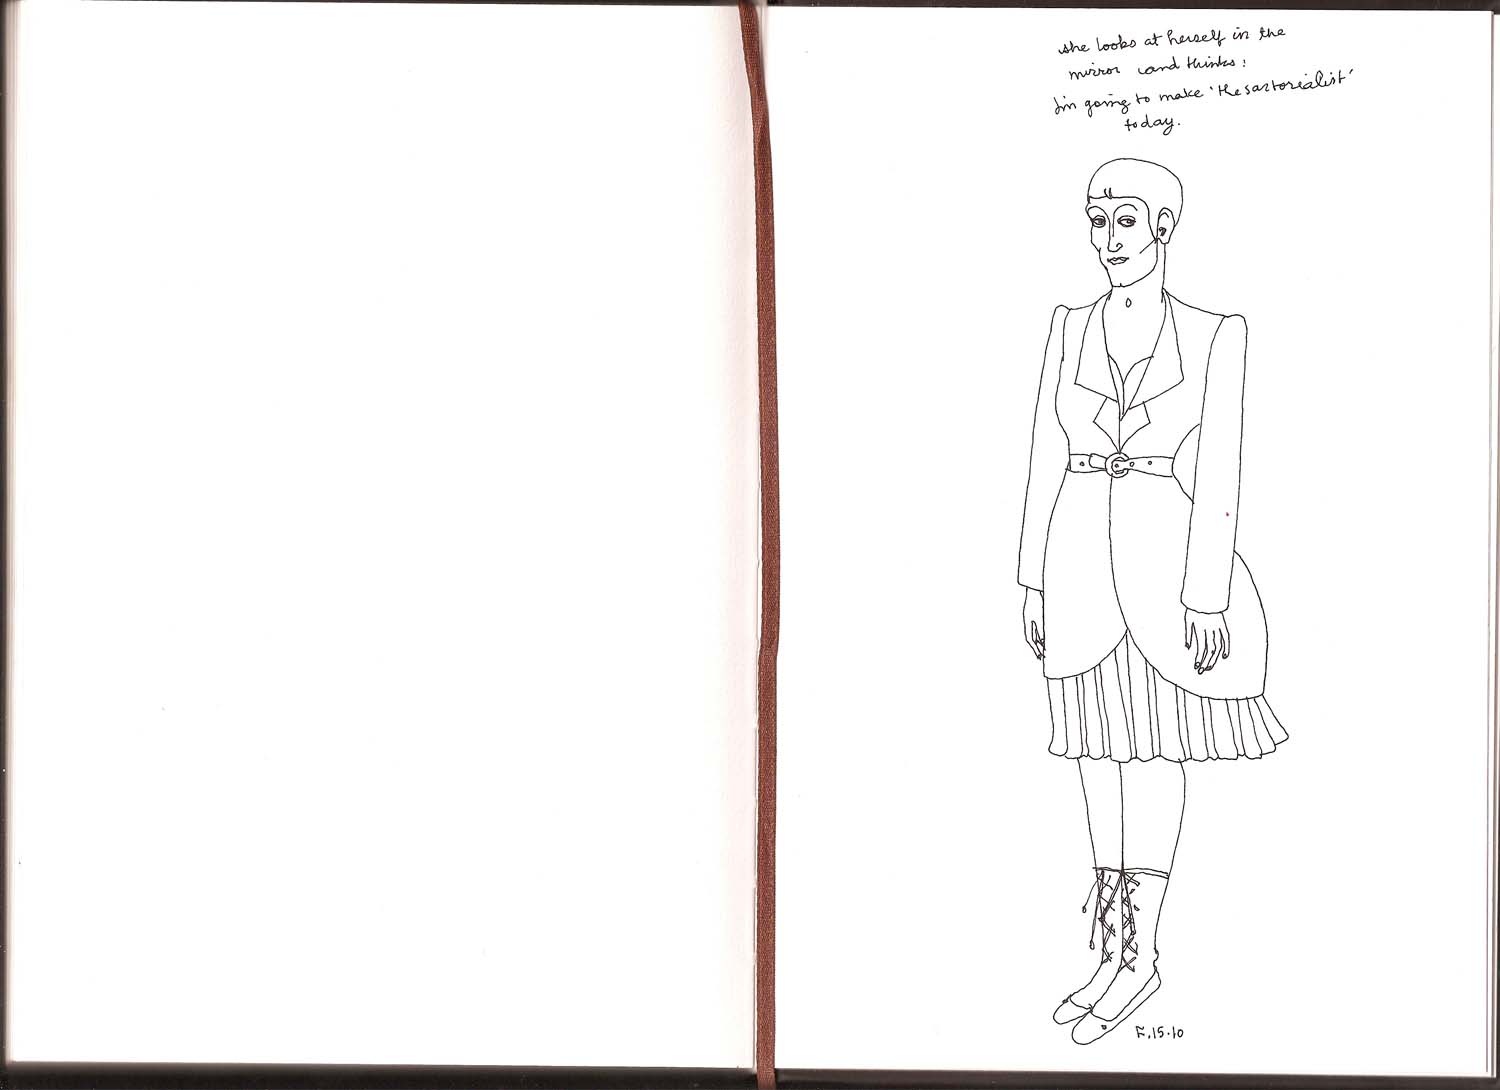 she looks at herself in the
mirror and thinks:
I'm going to make 'the sartorialist'
today.
F.15.10